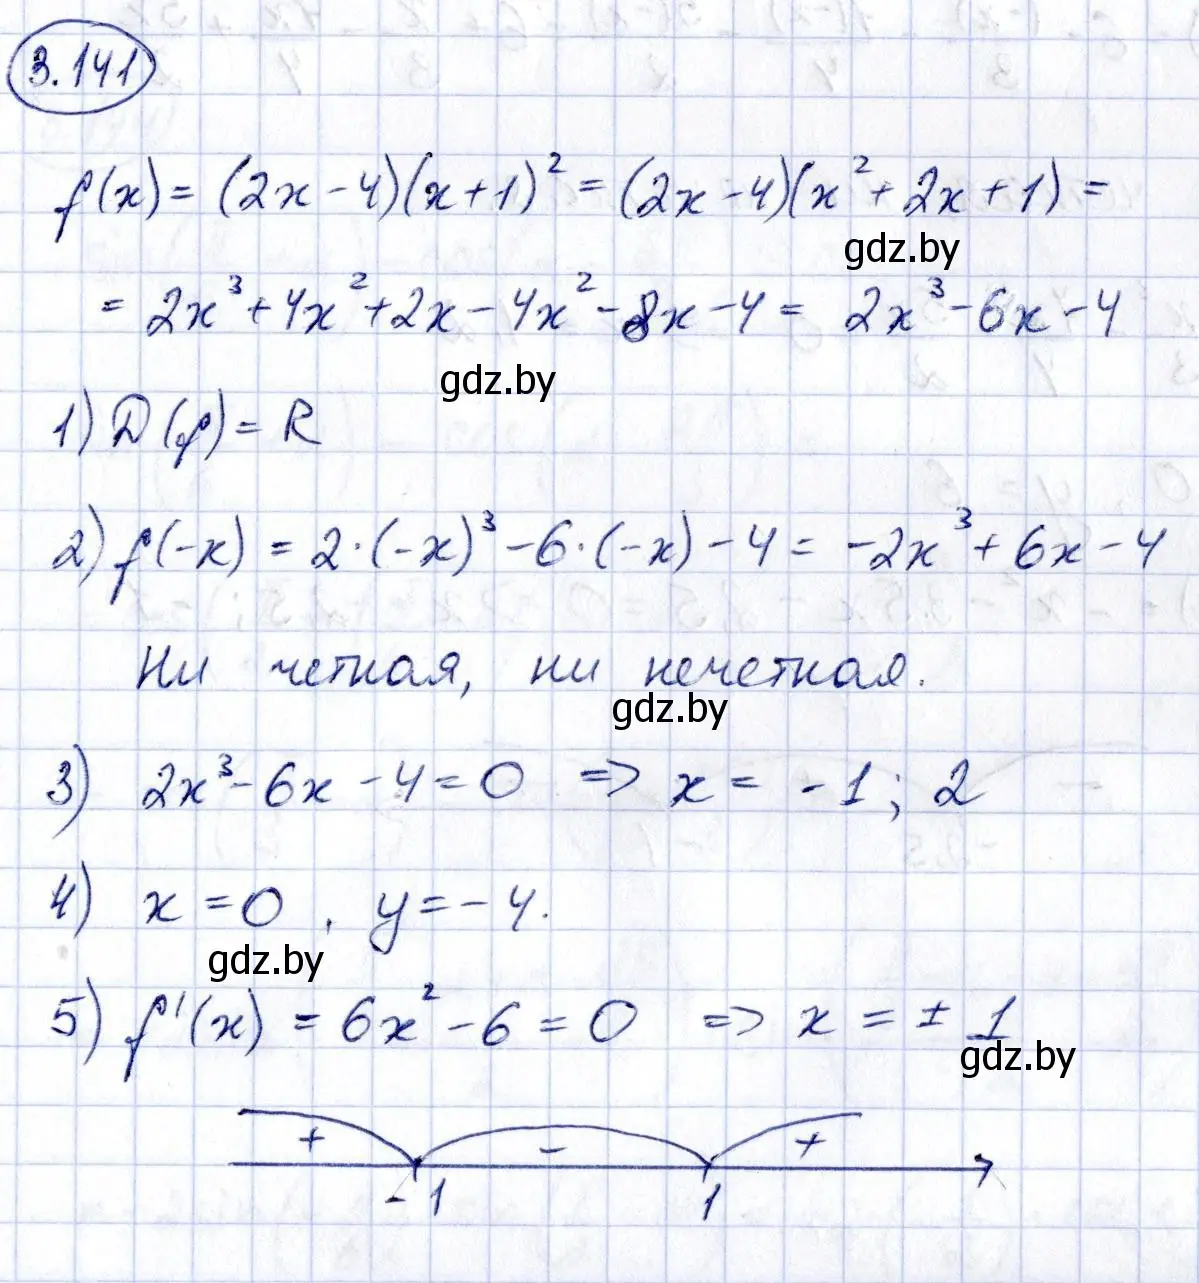 3.141
f(x) = (2x - 4)(x + 1)² = (2x - 4)(x² + 2x + 1) =
gdz.by
= 2x³ + 4x² + 2x - 4x² - 8x - 4 = 2x³ - 6x - 4
gdz.by
1) D(f) = R
2) f(-x) = 2·(-x)³ - 6·(-x) - 4 = -2x³ + 6x - 4
Ни четная, ни нечетная.
gdz.by
3) 2x³ - 6x - 4 = 0 => x = -1; 2
4) x = 0, y = -4.
gdz.by
5) f'(x) = 6x² - 6 = 0 => x = ± 1
gdz.by
+ - +
-1 1